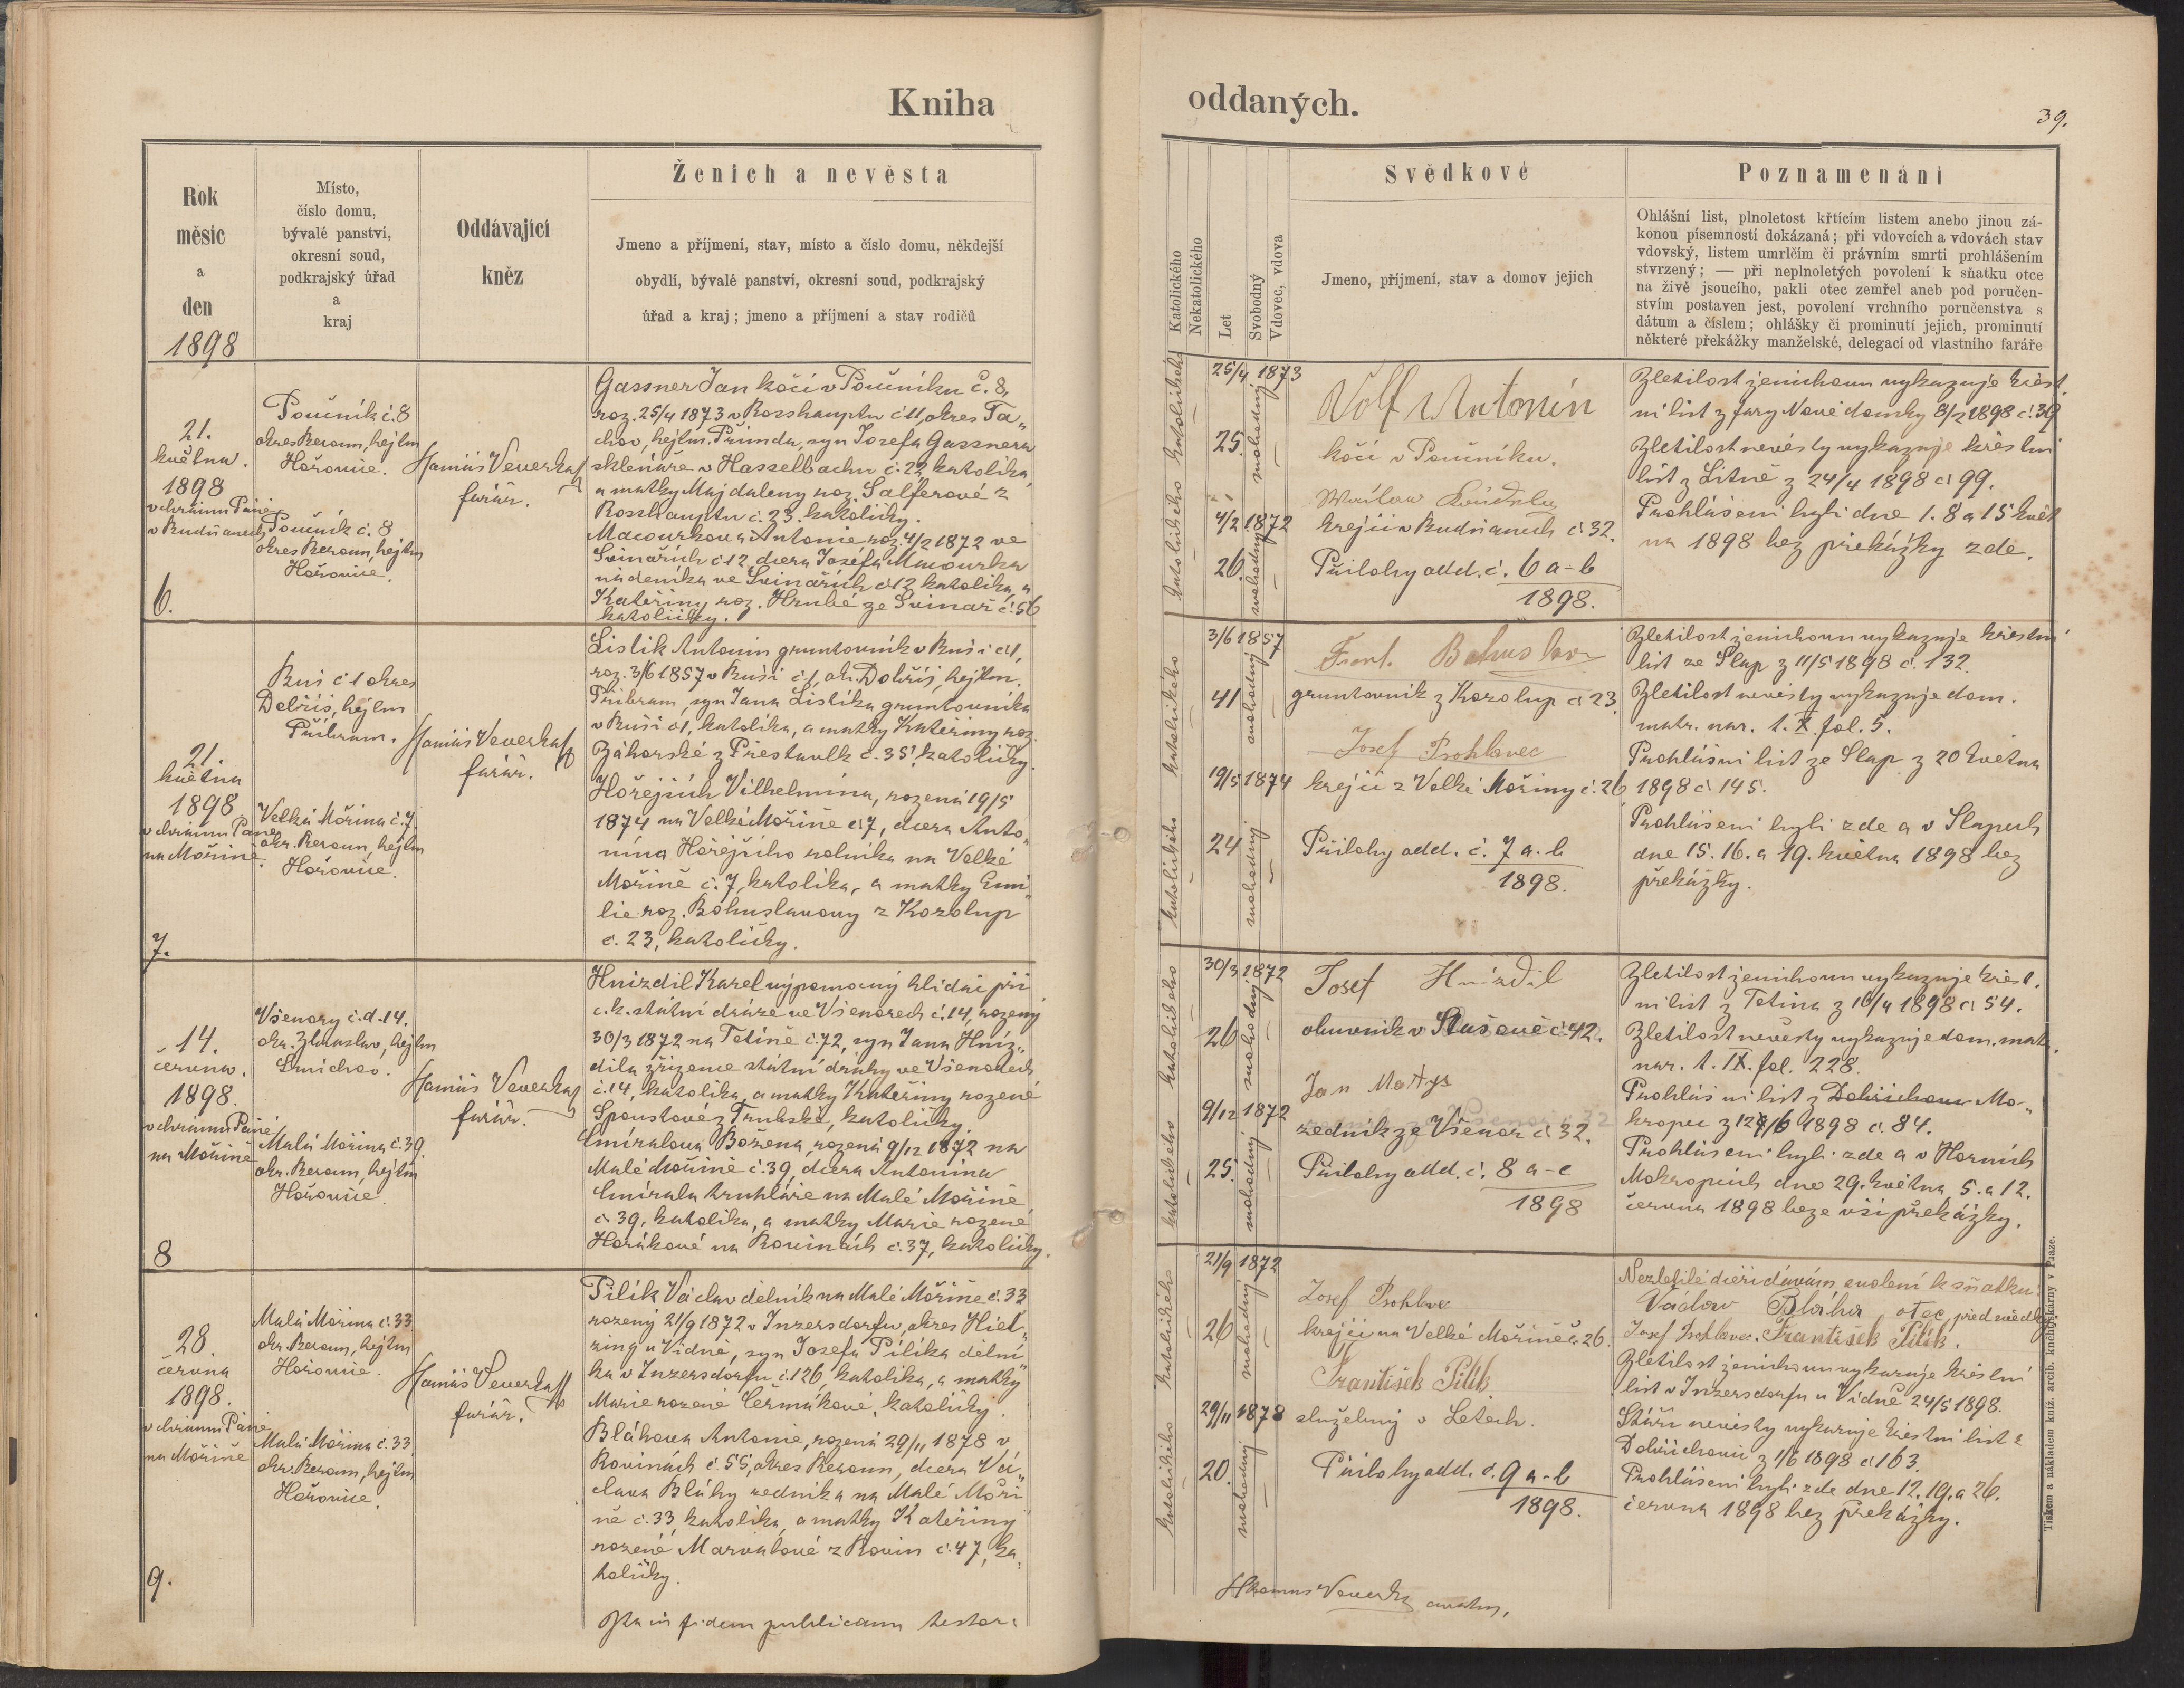 Kniha
oddaných.
39.
Rok
měsíc
a
den
1898
Místo,
číslo domu,
bývalé panství,
okresní soud,
podkrajský úřad
a
kraj
Oddávající
kněz
Ženich a nevěsta
Jmeno a příjmení, stav, místo a číslo domu, někdejší
obydlí, bývalé panství, okresní soud, podkrajský
úřad a kraj; jmeno a příjmení a stav rodičů
Katolického
Nekatolického
Let
Svobodný
Vdovec, vdova
Svědkové
Jmeno, příjmení, stav a domov jejich
Poznamenání
Ohlášní list, plnoletost křtícím listem anebo jinou zá-
konou písemností dokázaná; při vdovcích a vdovách stav
vdovský, listem umrlčím či právním smrti prohlášením
stvrzený; — při neplnoletých povolení k sňatku otce
na živě jsoucího, pakli otec zemřel aneb pod poručen-
stvím postaven jest, povolení vrchního poručenstva s
dátum a číslem; ohlášky či prominutí jejich, prominutí
některé překážky manželské, delegací od vlastního faráře
21.
května.
1898
v chrámu Páně
v Budňanech
6.
Poučník č. 8
okres Beroun, hejtm
Hořovice.
Poučník č. 8
okres Beroun, hejtm
Hořovice.
Hanuš Veverka
farář.
Gassner Jan kočí v Poučníku č. 8,
roz. 25/4 1873 v Rosshauptu č 11, okres Ta„
chov, hejtm. Přimda, syn Josefa Gassnera
sklenáře v Hasselbachu č. 22, katolíka,
a matky Majdaleny roz. Salferové z
Rosshauptu č. 23. katoličky.
Macourkova Antonie roz. 4/2 1872 ve
Svinařích č 12, dcera Josefa Macourka
nádeníka ve Svinařích č 12 katolíka, a
Kateřiny roz. Hrubé ze Svinař č. 56
katoličky.
katolického
katolického
25/4 1873
25.
svobodný
4/2 1872
26.
svobodný
Wolf Antonín
kočí v Poučníku.
krejčí v Budňanech č. 32.
Přílohy odd. č. 6 a-b
1898.
Zletilost ženichovu vykazuje křest
ní list z fary Nové domky 8/2 1898 č. 39
Zletilost nevěsty vykazuje křestní
list z Litně z 24/4 1898 č 99.
Prohlášeni byli dne 1. 8 a 15 květ
na 1898 bez překážky zde.
21.
května
1898
v chrámu Páně
na Mořině.
7.
Buš č 1 okres
Dobříš, hejtm
Příbram.
Velká Mořina č. 7.
okr. Beroun, hejtm
Hořovice.
Hanuš Veverka
farář.
Lislik Antonín gruntovník v Buši č 1,
roz. 3/6 1857 v Buši č. 1, okr. Dobříš, hejtm.
Příbram, syn Jana Lislíka gruntovníka
v Buši č 1, katolíka, a matky Kateřiny roz.
Záhorské z Přestavlk č. 35, katoličky.
Hořejších Vilhelmína, rozená 19/5
1874 na Velké Mořině č 7, dcera Anto„
nína Hořejšího rolníka na Velké
Mořině č. 7, katolíka, a matky Emi„
lie roz. Bohuslavovy z Korolup
č. 23, katoličky.
katolického
katolického
3/6 1857
41
svobodný
19/5 1874
24
svobodný
Frant. Bohuslav
gruntovník z Korolup č 23.
Josef Prohlavec
krejčí z Velké Mořiny č. 26
Přílohy odd. č. 7 a-b
1898.
Zletilost ženichovu vykazuje křestní
list ze Slap z 11/5 1898 č. 132.
Zletilost nevěsty vykazuje dom.
matr. nar. t. X. fol. 5.
Prohlášní list ze Slap z 20 května
1898 č 145.
Prohlášeni byli zde a v Slapech
dne 15. 16. a 19. května 1898 bez
překážky.
14.
června.
1898.
v chrámu Páně
na Mořině
8
Všenory č. d. 14.
okr. Zbraslav, hejtm
Smíchov.
Malá Mořina č. 39.
okr. Beroun, hejtm
Hořovice.
Hanuš Veverka
farář.
Hnízdil Karel výpomocný hlídač při
c. k. státní dráze ve Všenorech č. 14, rozený
30/3 1872 na Tetíně č. 72, syn Jana Hníz„
dila zřízence státní dráhy ve Všenorech
č. 14, katolíka, a matky Kateřiny rozené
Spoustové z Trubské, katoličky.
Čmíralova Božena, rozená 9/12 1872 na
Malé Mořině č. 39, dcera Antonína
Čmírala truhláře na Malé Mořině
č 39, katolíka, a matky Marie rozené
Horákové na Rovinách č. 37, katoličky.
katolického
katolického
30/3 1872
26
svobodný
9/12 1872
25.
svobodný
Josef Hnízdil
obuvník v č 42.
Jan Matys
zedník ze Všenor č 32.
Přílohy odd. č. 8 a-e
1898
Zletilost ženichovu vykazuje křest.
ní list z Tetína z 16/4 1898 č 54.
Zletilost nevěsty vykazuje dom. matr.
nar. t. IX. fol. 228.
Prohlášní list z Dobřichovic Mo-
kropec z 12/6 1898 č. 84.
Prohlášeni byli zde a v Horních
Mokropcích dne 29. května, 5. a 12.
června 1898 beze vší překážky.
28.
června
1898.
v chrámu Páně
na Mořině
9.
Malá Mořina č. 33
okr. Beroun, hejtm
Hořovice.
Malá Mořina č. 33
okr. Beroun, hejtm
Hořovice.
Hanuš Veverka
farář.
Pilík Václav dělník na Malé Mořině č. 33
rozený 21/9 1872 v Inzersdorfu, okres Hiet„
zing u Vídně, syn Josefa Pilíka dělní„
ka v Inzersdorfu č. 126, katolíka, a matky
Marie rozené Čermákové, katoličky.
Bláhova Antonie, rozená 29/11 1878 v
Rovinách č. 55, okres Beroun, dcera Vá„
clava Bláhy zedníka na Malé Moři
ně č. 33 katolíka, a matky Kateřiny
rozené Marvalové z Rovin č. 47, ka„
toličky.
katolického
katolického
21/9 1872
26
svobodný
29/11 1878
20.
svobodný
Josef Prohlavec
krejčí na Velké Mořině č. 26.
František Pilík
služebný v Letech.
Přílohy odd. č. 9 a-b
1898.
Nezletilé dceři dávám svolení k sňatku:
Václav Bláha, otec, před svědky
Josef Prohlavec. František Pilík.
Zletilost ženichovu vykazuje křestní
list v Inzersdorfu u Vídně 24/5 1898.
Stáří nevěsty vykazuje křestní list z
Dobřichovic z 1/6 1898 č 163.
Prohlášeni byli zde dne 12. 19. a 26.
června 1898 bez překážky.
Ita in fidem publicam testor:
Veverka curatus.
Tiskem a nákladem kníž. arcib. knihtiskárny v Praze.